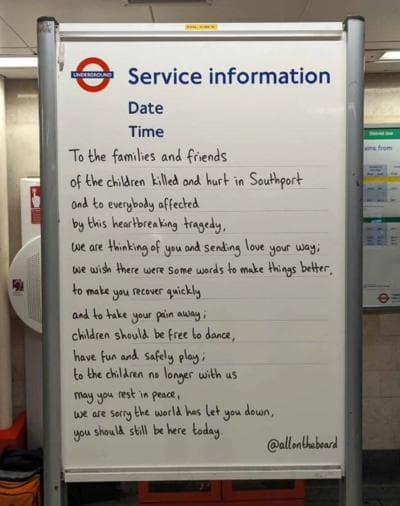 UNDERGROUND
Service information
Date
Time
To the families and friends
of the children killed and hurt in Southport
and to everybody affected
by this heartbreaking tragedy,
we are thinking of you and sending love your way;
we wish there were some words to make things better,
to make you recover quickly
and to take your pain away;
children should be free to dance,
have fun and safely play;
to the children no longer with us
may you rest in peace,
we are sorry the world has let you down,
you should still be here today.
@allontheboard
District line
ains from